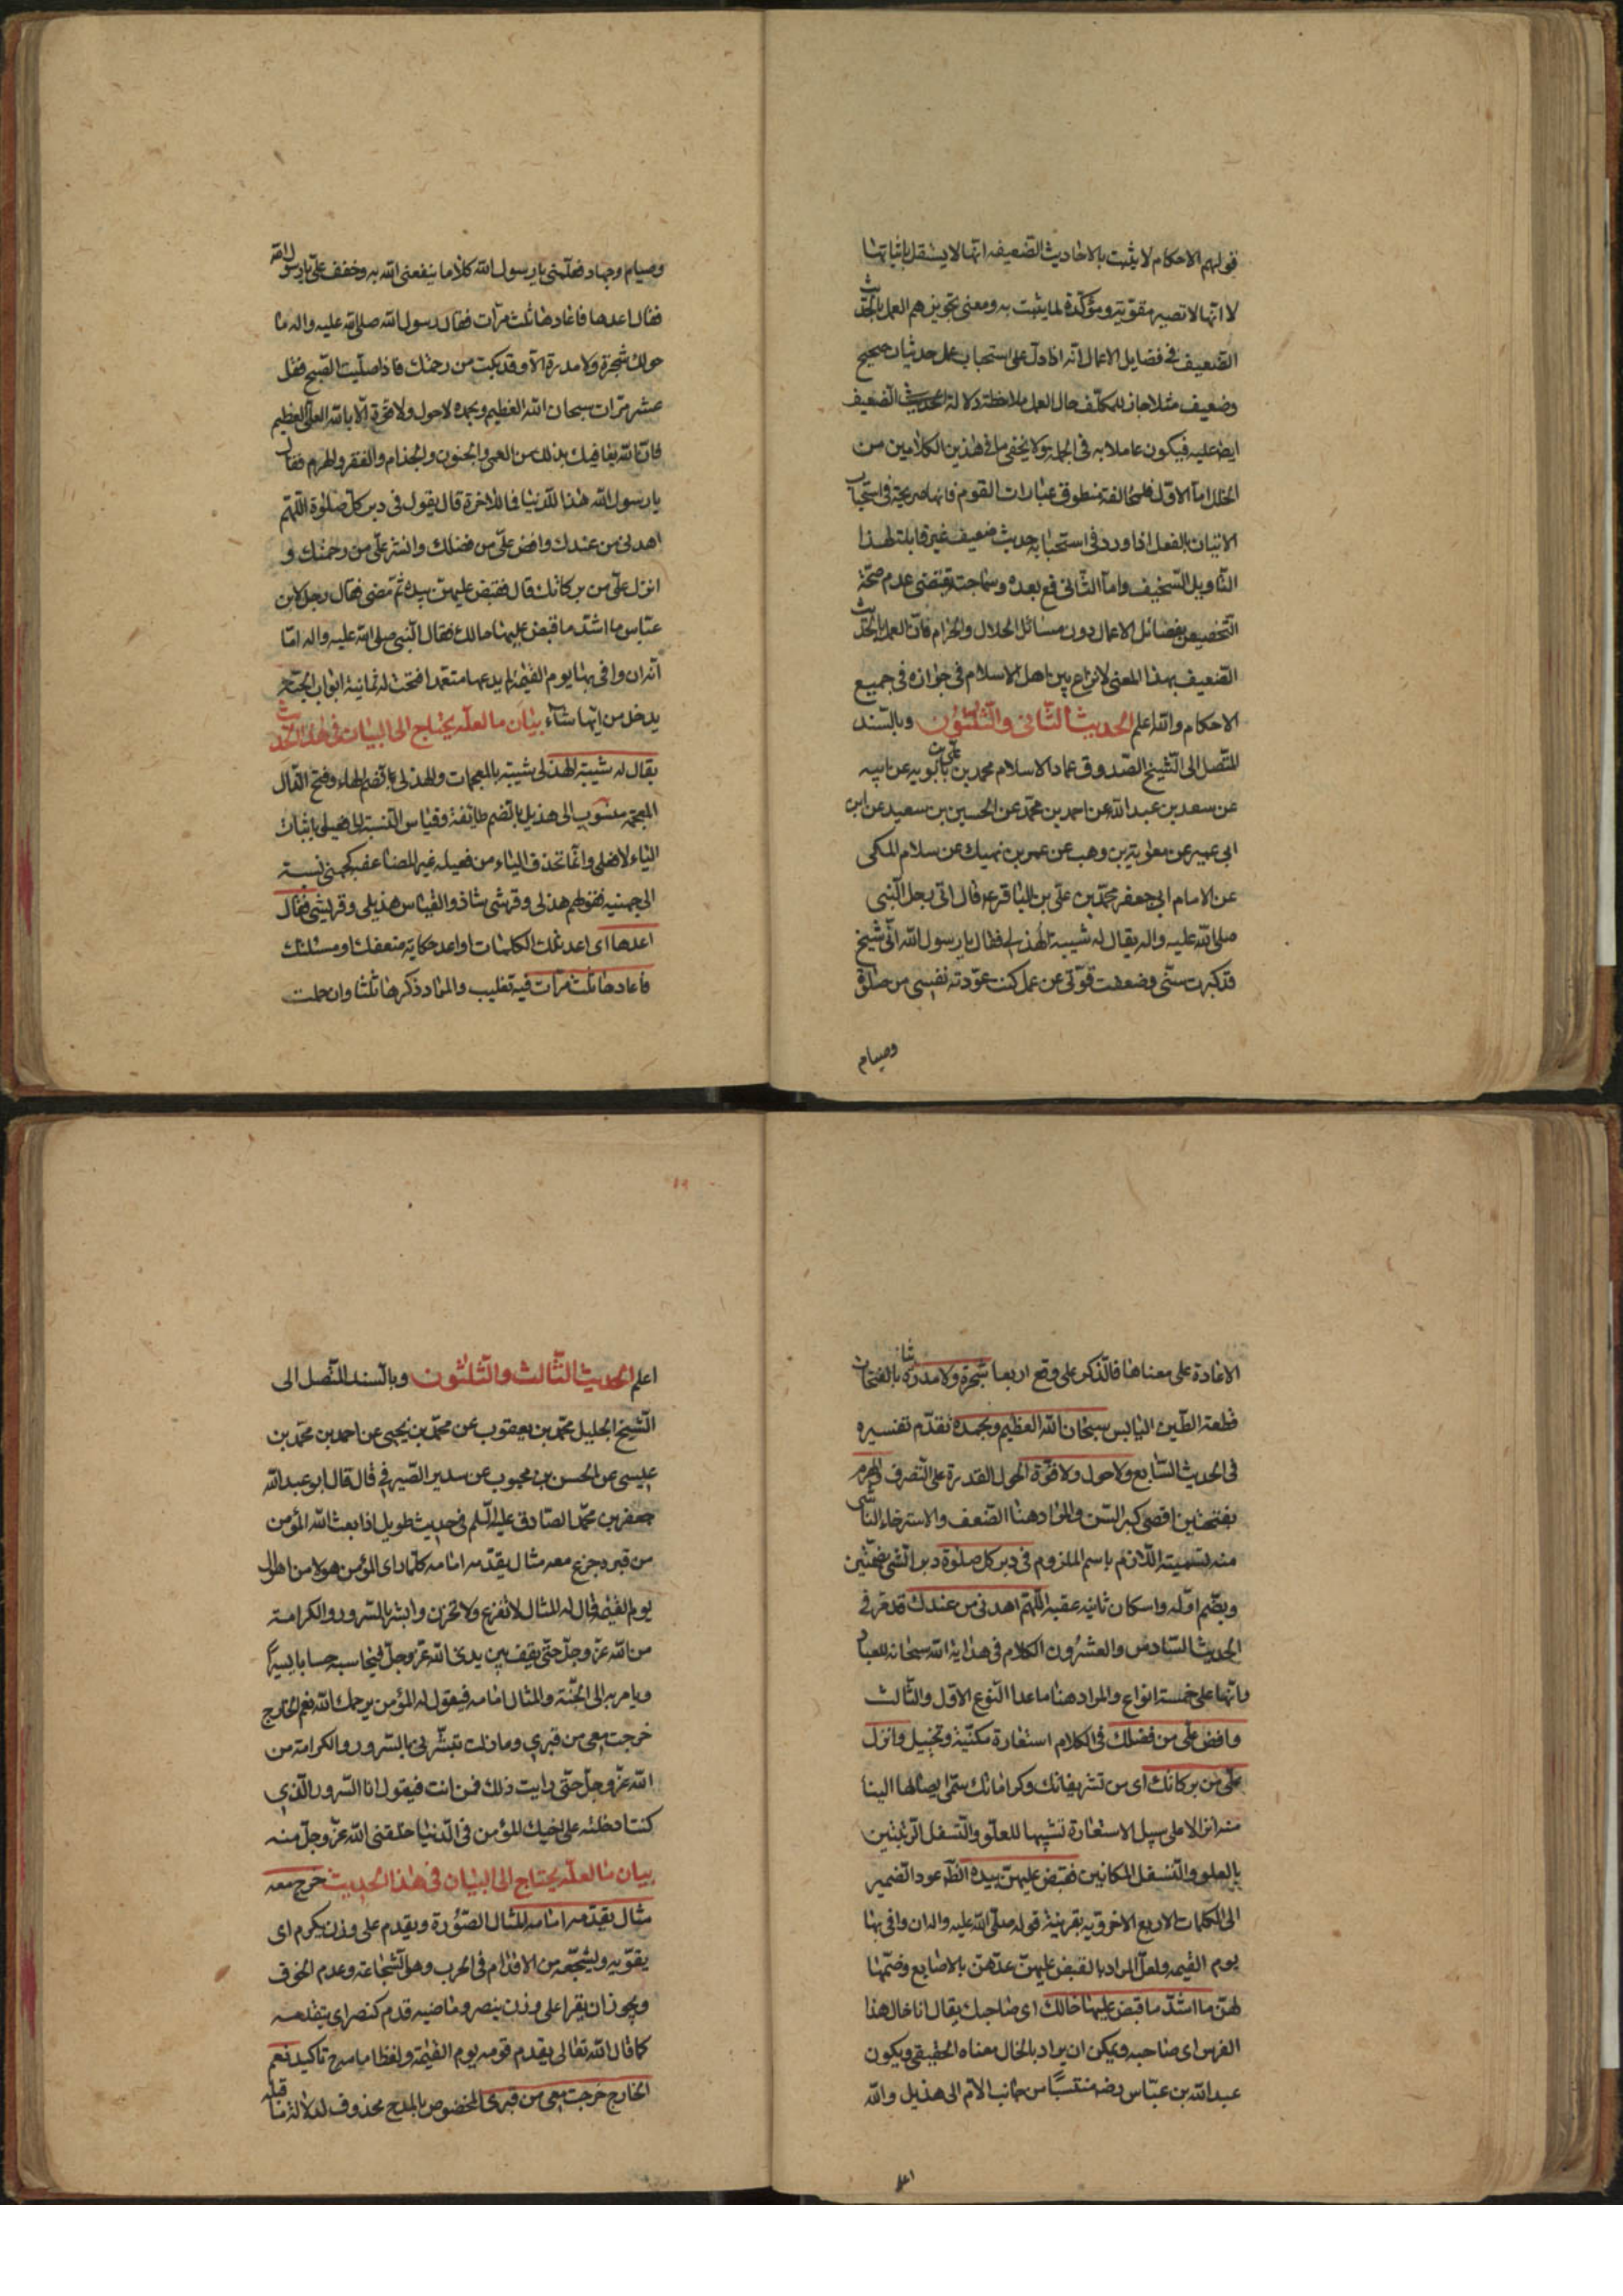 قولهم الاحكام لا يثبت بالاحاديث الضعيفه انها لا يستقل باثباتها
لا انها لا تصير مقوية ومؤكدة لما يثبت به ومعنى تجويزهم العمل بالحديث
الضعيف فى فضايل الاعمال انه اذا دل على استحباب عمل حديثان صحيح
وضعيف مثلا جاز للمكلف حال العمل ملاحظة دلالة الحديث الضعيف
ايضا عليه فيكون عاملا به فى الجملة ولا يخفى ما فى هذين الكلامين من
الخلل اما الاول فلمخالفته منطوق عبارات القوم فانها صريحة فى استحباب
الاتيان بالفعل اذا ورد فى استحبابه حديث ضعيف غير قابلة لهذا
التاويل السخيف واما الثانى فمع بعده وسماجته يقتضى عدم صحة
التخصيص بفضائل الاعمال دون مسائل الحلال والحرام فان العمل بالحديث
الضعيف بهذا المعنى لا نزاع بين اهل الاسلام فى جوازه فى جميع
الاحكام والله اعلم الحديث الثانى والثلثون وبالسند
المتصل الى الشيخ الصدوق عماد الاسلام محمد بن على بن بابويه عن ابيه
عن سعد بن عبد الله عن احمد بن محمد عن الحسين بن سعيد عن ابن
ابى عمير عن معوية بن وهب عن عمر بن نهيك عن سلام المكى
عن الامام ابى جعفر محمد بن على بن الباقر ع قال اتى رجل النبى
صلى الله عليه واله يقال له شيبة الهذلى فقال يا رسول الله انى شيخ
قد كبرت سنى وضعفت قوتى عن عمل كنت عودته نفسى من صلوة
وصيام
وصيام وجهاد فعلمنى يا رسول الله كلاما ينفعنى الله به وخفف على يا رسول الله
فقال اعدها فاعادها ثلث مرات فقال رسول الله صلى الله عليه واله ما
حولك شجرة ولا مدرة الا وقد بكت من رحمتك فاذا صليت الصبح فقل
عشر مرات سبحان الله العظيم وبحمده لا حول ولا قوة الا بالله العلى العظيم
فان الله يعافيك بذلك من العمى والجنون والجذام والفقر والهرم فقال
يا رسول الله هذا للدنيا فما للاخرة قال يقول فى دبر كل صلوة اللهم
اهدنى من عندك وافض على من فضلك وانشر على من رحمتك و
انزل على من بركاتك قال فقبض عليهن بيده ثم مضى فقال رجل لابن
عباس ما اشد ما قبض عليها خالك فقال النبى صلى الله عليه واله اما
انه ان وافى بها يوم القيمة لم يدعها متعمدا فتحت له ثمانية ابواب الجنة
يدخل من ايها شاء بيان ما لعله يحتاج الى البيان فى هذا الحديث
يقال له شيبة الهذلى شيبة بالمعجمات والهذلى بضم الهاء وفتح الذال
المعجمة منسوب الى هذيل بالضم طائفة وقياس النسبة الى فعيل باثبات
الياء لا فعلى وانما تحذف الياء من فعيله غير المضاعف كجهنى نسبة
الى جهينه فقولهم هذلى وقرشى شاذ والقياس هذيلى وقريشى فقال
اعدها اى اعد تلك الكلمات او اعد حكاية ضعفك او مسئلتك
فاعادها ثلث مرات فيه تغليب والمراد ذكرها ثلثا وان حملت
الاعادة على معناها فالذكر على وقع اربعا شجرة ولا مدرة بالفتحات
قطعة الطين اليابس سبحان الله العظيم وبحمده تقدم تفسيره
فى الحديث السابع ولا حول ولا قوة الحول القدرة على التصرف والهرم
بفتحتين اقصى كبر السن والمراد هنا الضعف والاسترخاء الناشى
منه تسمية اللازم باسم الملزوم فى دبر كل صلوة دبر الشى بضمتين
وبضم اوله واسكان ثانيه عقبه اللهم اهدنى من عندك قد مر فى
الحديث السادس والعشرون الكلام فى هداية الله سبحانه للعباد
وانها على خمسة انواع والمراد هنا ما عدا النوع الاول والثالث
وافض على من فضلك فى الكلام استعارة مكنية وتخييل وانزل
على من بركاتك اى من تشريفاتك وكراماتك سمى ايصالها الينا
منه انزالا على سبيل الاستعارة تشبيها للعلو والتسفل الرتبيين
بالعلو والتسفل المكانيين فقبض عليهن بيده الظ عود الضمير
الى الكلمات الاربع الاخروية بقرينة قوله صلى الله عليه واله ان وافى بها
يوم القيمه ولعل المراد بالقبض عليهن عدهن بالاصابع وضمها
لهن ما اشد ما قبض عليها خالك اى صاحبك يقال انا خال هذا
الفرس اى صاحبه ويمكن ان يراد بالخال معناه الحقيقى ويكون
عبد الله بن عباس رضه منتسبا من جانب الام الى هذيل والله
اعلم
اعلم الحديث الثالث والثلثون وبالسند المتصل الى
الشيخ الجليل محمد بن يعقوب عن محمد بن يحيى عن احمد بن محمد بن
عيسى عن الحسن بن محبوب عن سدير الصيرفى قال قال ابو عبد الله
جعفر بن محمد الصادق عليه السلم فى حديث طويل اذا بعث الله المؤمن
من قبره خرج معه مثال يقدمه امامه كلما راى المؤمن هولا من اهوال
يوم القيمه قال له المثال لا تفزع ولا تحزن وابشر بالسرور والكرامة
من الله عز وجل حتى يقف بين يدى الله عز وجل فيحاسبه حسابا يسيرا
ويامر به الى الجنة والمثال امامه فيقول له المؤمن يرحمك الله نعم الخارج
خرجت معى من قبرى وما زلت تبشرنى بالسرور والكرامة من
الله عز وجل حتى رايت ذلك فمن انت فيقول انا السرور الذى
كنت ادخلته على اخيك المؤمن فى الدنيا خلقنى الله عز وجل منه
بيان ما لعله يحتاج الى البيان فى هذا الحديث خرج معه
مثال يقدمه امامه المثال الصورة ويقدم على وزن يكرم اى
يقويه ويشجعه من الاقدام فى الحرب وهو الشجاعة وعدم الخوف
ويجوز ان يقرا على وزن ينصر وماضيه قدم كنصر اى يتقدمه
كما قال الله تعالى يقدم قومه يوم القيمة ولفظ امامه ح تاكيد نعم
الخارج خرجت معى من قبرى المخصوص بالمدح محذوف لدلالة ما قبله